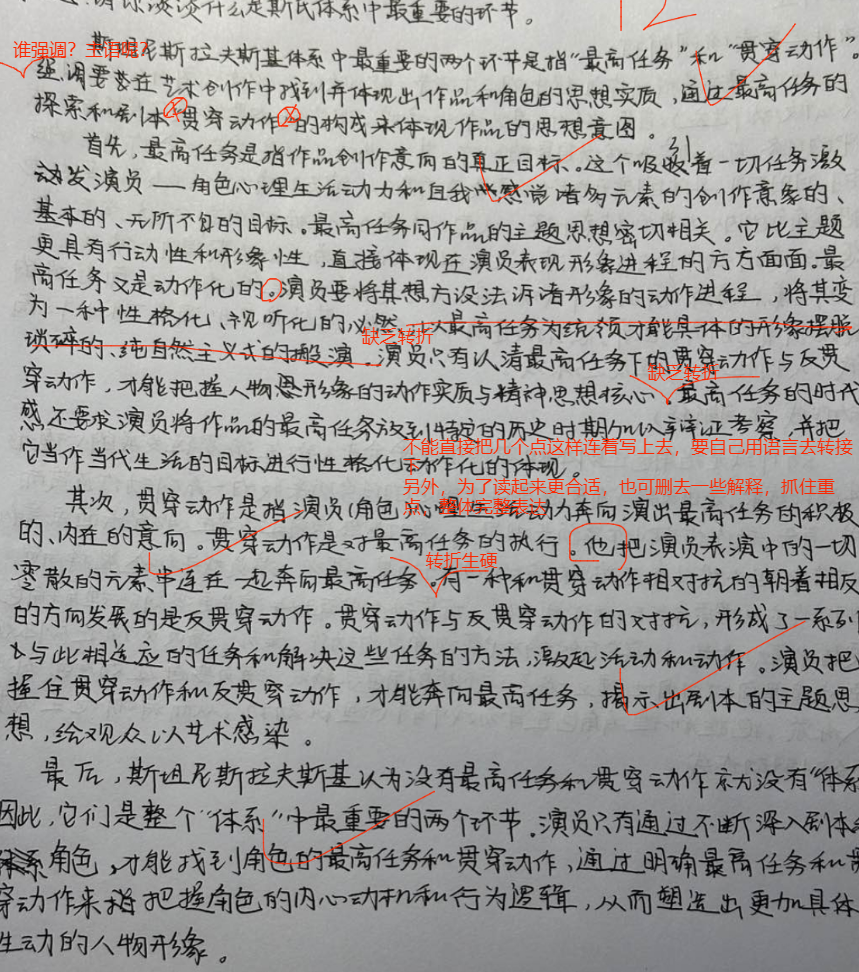 谈谈什么是斯氏体系中最重要的环节。
12
谁强调？主语呢？
斯坦尼斯拉夫斯基体系中最重要的两个环节是指“最高任务”和“贯穿动作”。
强调要在艺术创作中找到并体现出作品和角色的思想实质，通过最高任务的
探索和剧本贯穿动作的构成来体现作品的思想意图。
首先，最高任务是指作品创作意向的真正目标。这个吸引着一切任务激
动发演员——角色心理生活动力和自我感觉诸多元素的创作意象的、
基本的、无所不包的目标。最高任务同作品的主题思想密切相关。它比主题
更具有行动性和形象性，直接体现在演员表现形象进程的方方面面。最
高任务又是动作化的。演员要将其想方设法诉诸形象的动作进程，将其变
为一种性格化、视听化的必然。以最高任务为统领才能具体的形象摆脱
缺乏转折
琐碎的、纯自然主义式的搬演。演员只有认清最高任务下的贯穿动作与反贯
缺乏转折
穿动作，才能把握人物形象的动作实质与精神思想核心。最高任务的时代
感还要求演员将作品的最高任务放到特定的历史时期加以辩证考察，并把
不能直接把几个点这样连着写上去，要自己用语言去转接
它当作当代生活的目标进行性格化动作化的体现。
另外，为了读起来更合适，也可删去一些解释，抓住重
点，整体完整表达
其次，贯穿动作是指演员（角色）心理生活动力奔向演出最高任务的积极
的、内在的意向。贯穿动作是对最高任务的执行。他把演员表演中的一切
转折生硬
零散的元素串连在一起奔向最高任务。有一种和贯穿动作相对抗的朝着相反
的方向发展的是反贯穿动作。贯穿动作与反贯穿动作的对抗，形成了一系列
与此相适应的任务和解决这些任务的方法，激起活动和动作。演员把
握住贯穿动作和反贯穿动作，才能奔向最高任务，揭示出剧本的主题思
想，给观众以艺术感染。
最后，斯坦尼斯拉夫斯基认为没有最高任务和贯穿动作就没有“体系
因此，它们是整个“体系”中最重要的两个环节。演员只有通过不断深入剧本
角色，才能找到角色的最高任务和贯穿动作，通过明确最高任务和贯
穿动作来把握角色的内心动机和行为逻辑，从而塑造出更加具体
生动的人物形象。